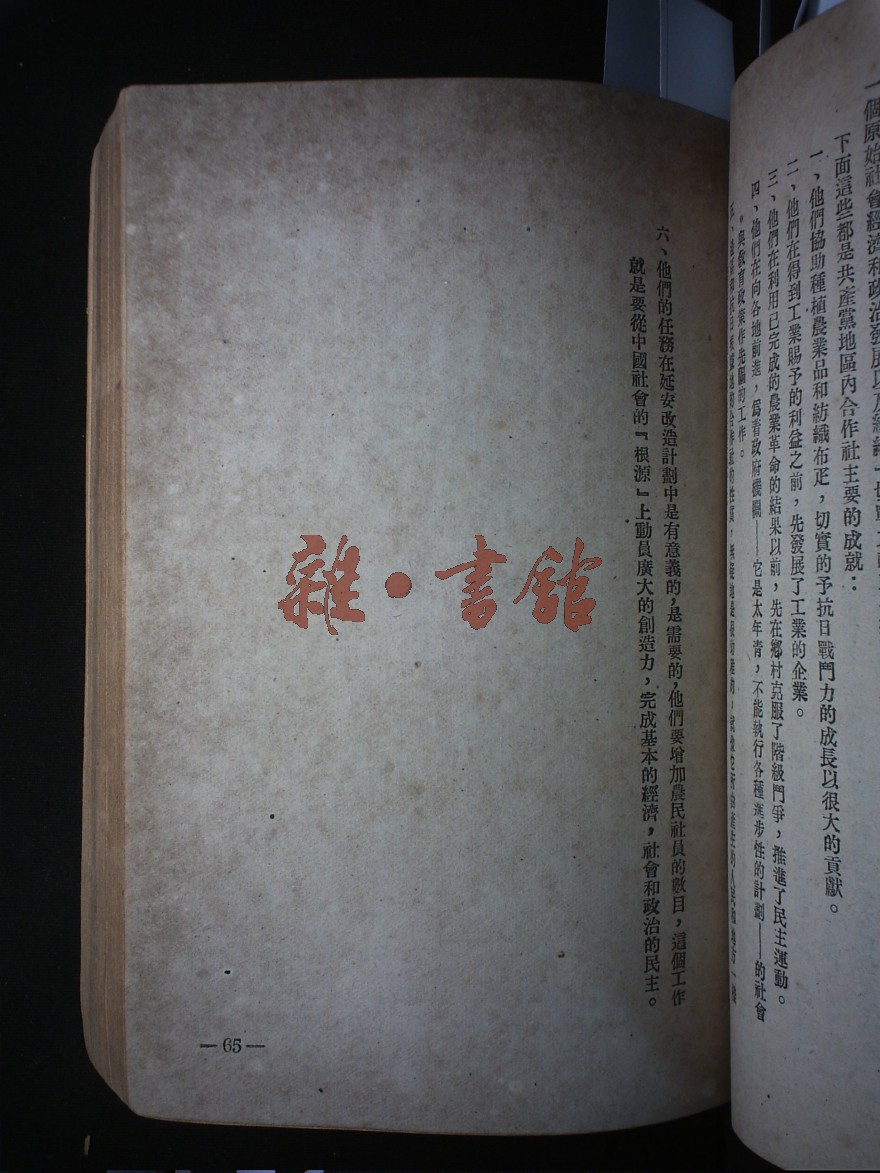 下面這些都是共產黨地區內合作社主要的成就：
一、他們協助種植農業品和紡織布疋，切實的予抗日戰鬥力的成長以很大的貢獻。
二、他們在得到工業賜予的利益之前，先發展了工業的企業。
三、他們在利用已完成的農業革命的結果以前，先在鄉村克服了階級鬥爭，推進了民主運動。
四、他們在向各地前進，爲着政府機關——它是太年青，不能執行各種進步性的計劃——的社會
與教育政策作先驅的工作。
六、他們的任務在延安改造計劃中是有意義的，是需要的，他們要增加農民社員的數目，這個工作
就是要從中國社會的『根源』上動員廣大的創造力，完成基本的經濟，社會和政治的民主。
雜·書館
—65—